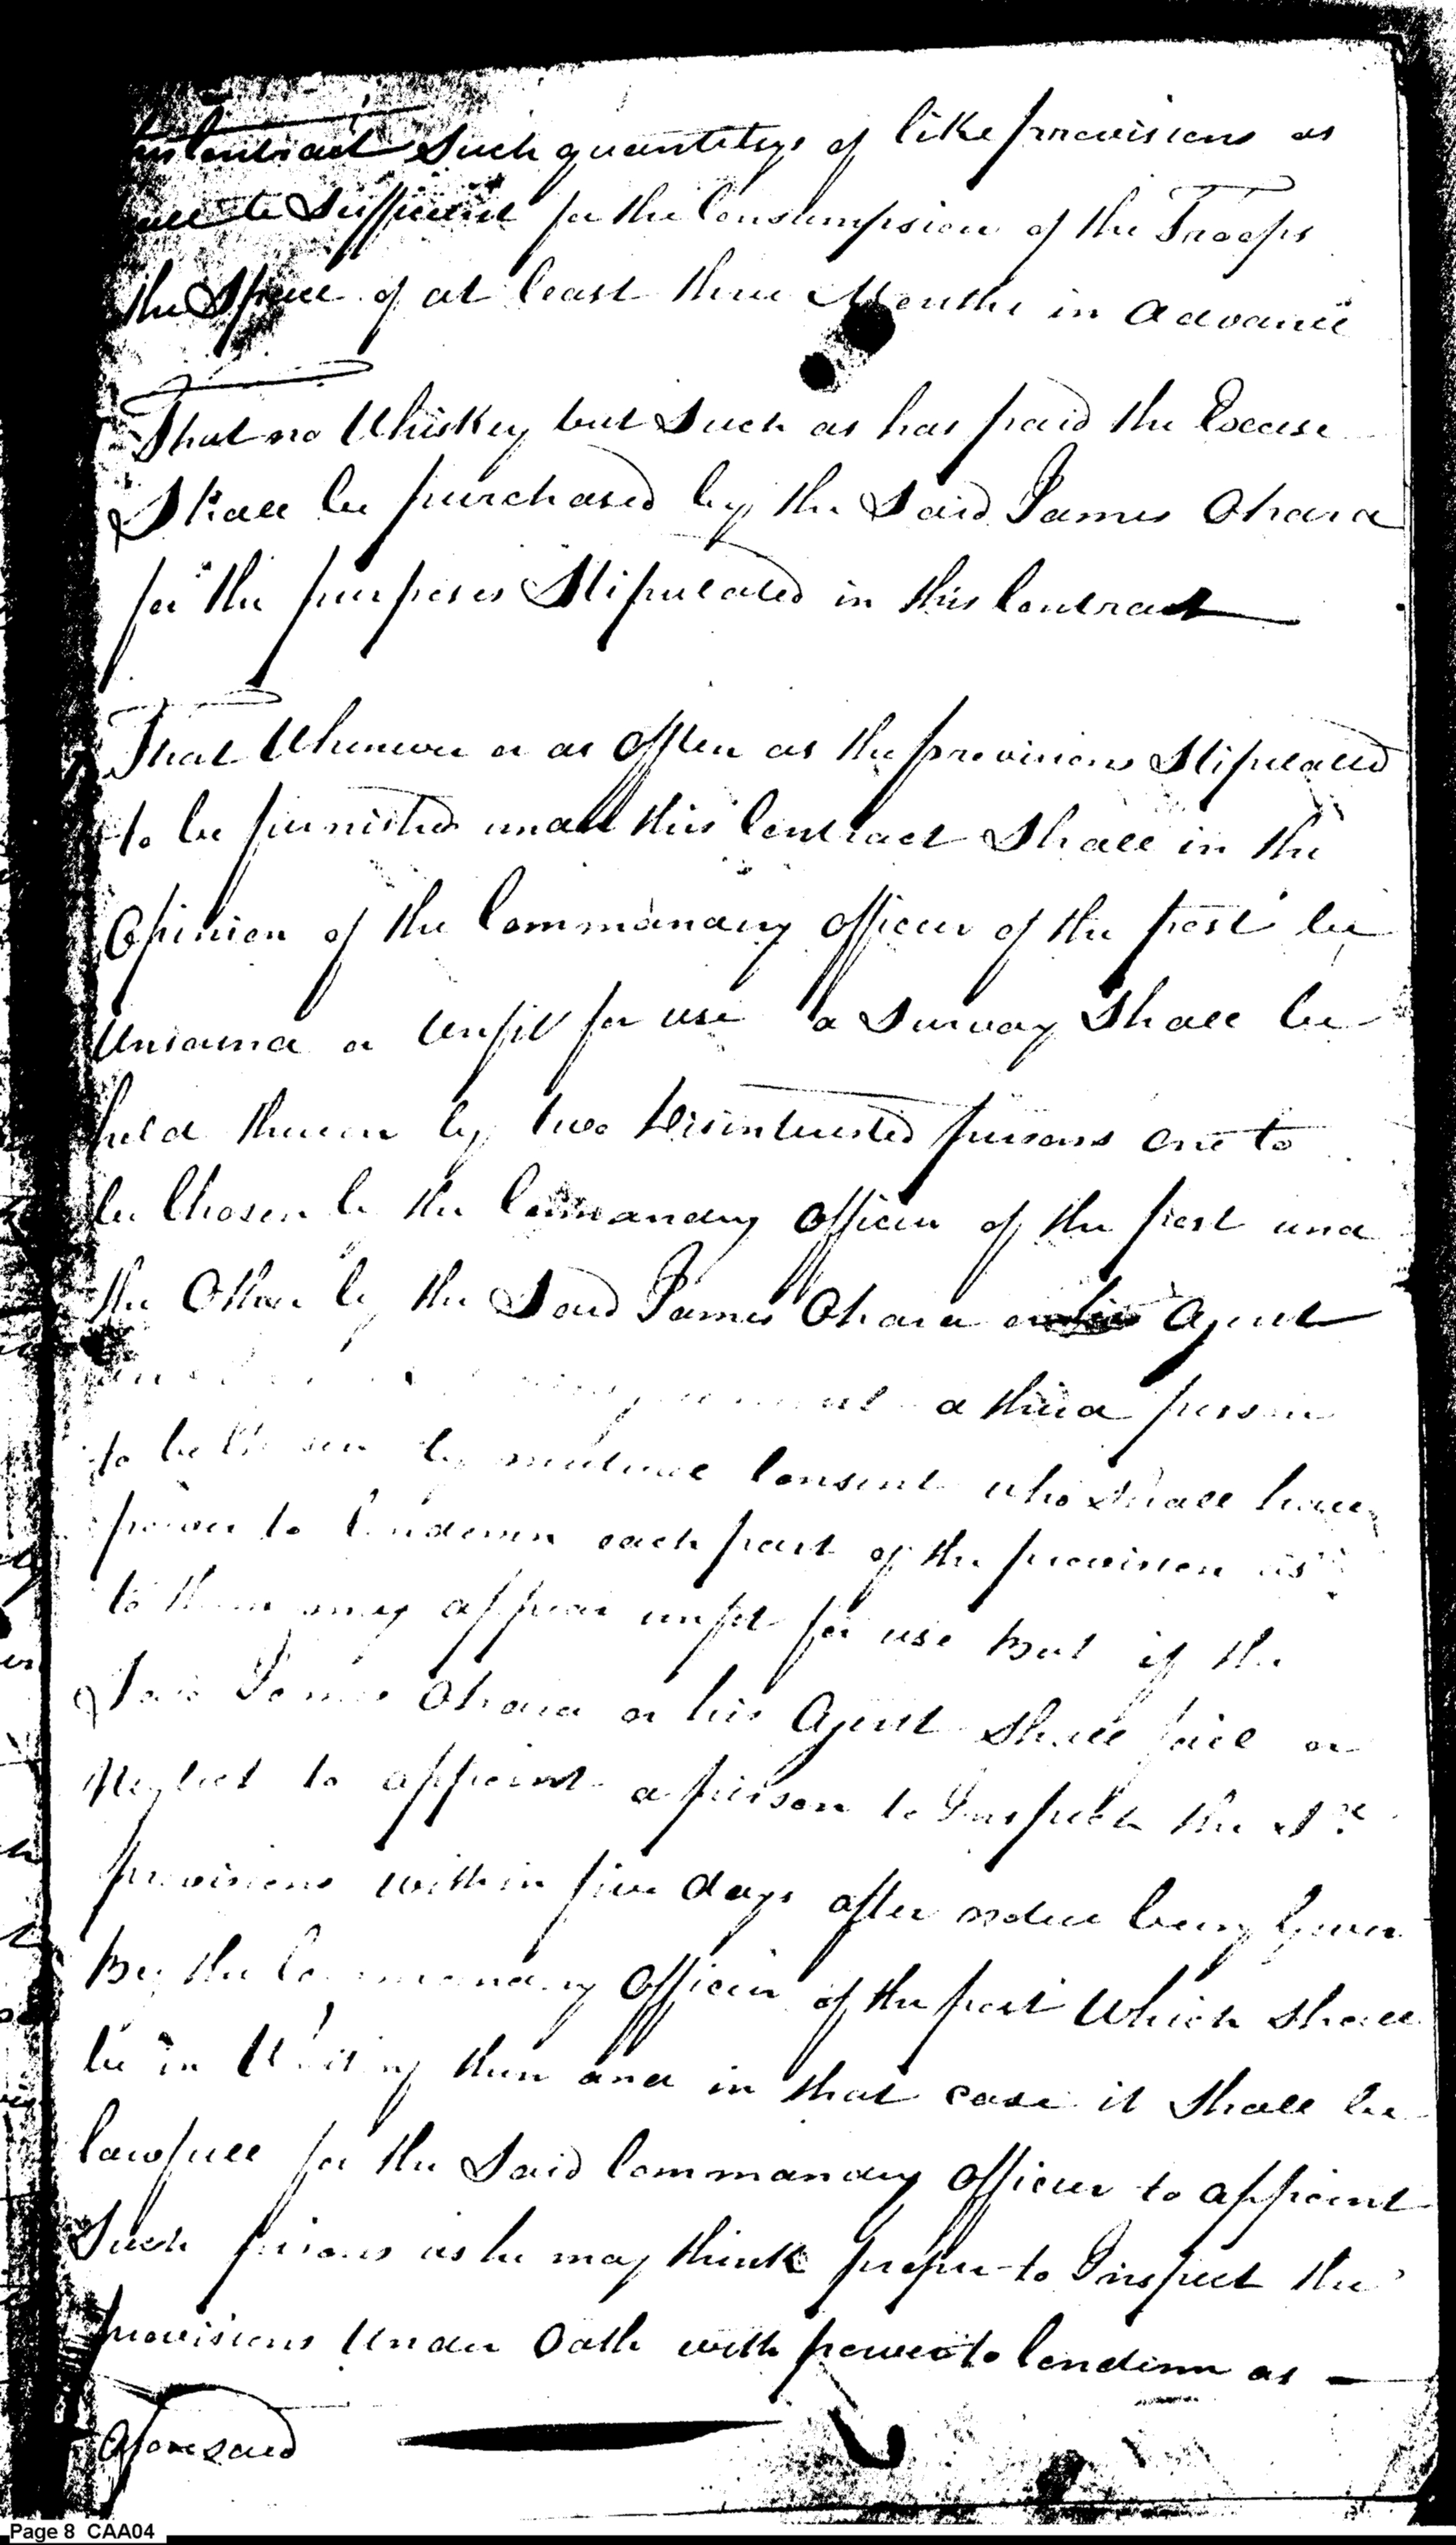 Contract Such quantitys of like provisions as
Sufficient for the Consumpsion of the Troops
the Space of at least three Months in advance
That no Whiskey but Such as has paid the Excise
Shall be purchased by the Said James Ohara
for the purposes Stipulated in this Contract
That Whenever or as Often as the provisions Stipulated
to be furnished under this Contract Shall in the
Opinion of the Commanding Officer of the post be
Unsound or Unfit for use a Survay Shall be
held thereon by two Disinterested persons one to
be Chosen by the Commanding Officer of the post and
the Other by the Said James Ohara or his Agent
a third person
to be Chosen by mutual Consent who Shall have
power to Condemn each part of the provision as
to them may appear unfit for use But if the
Said James Ohara or his Agent Shall fail or
Neglect to appoint a person to Inspect the Sd
provisions within five days after notice being Given
By the Commanding Officer of the post Which Shall
be in Writing then and in that case it Shall be
lawfull for the Said Commanding Officer to appoint
Such persons as he may think proper to Inspect the
provisions Under Oath with power to Condemn as
Aforesaid
Page 8 CAA04